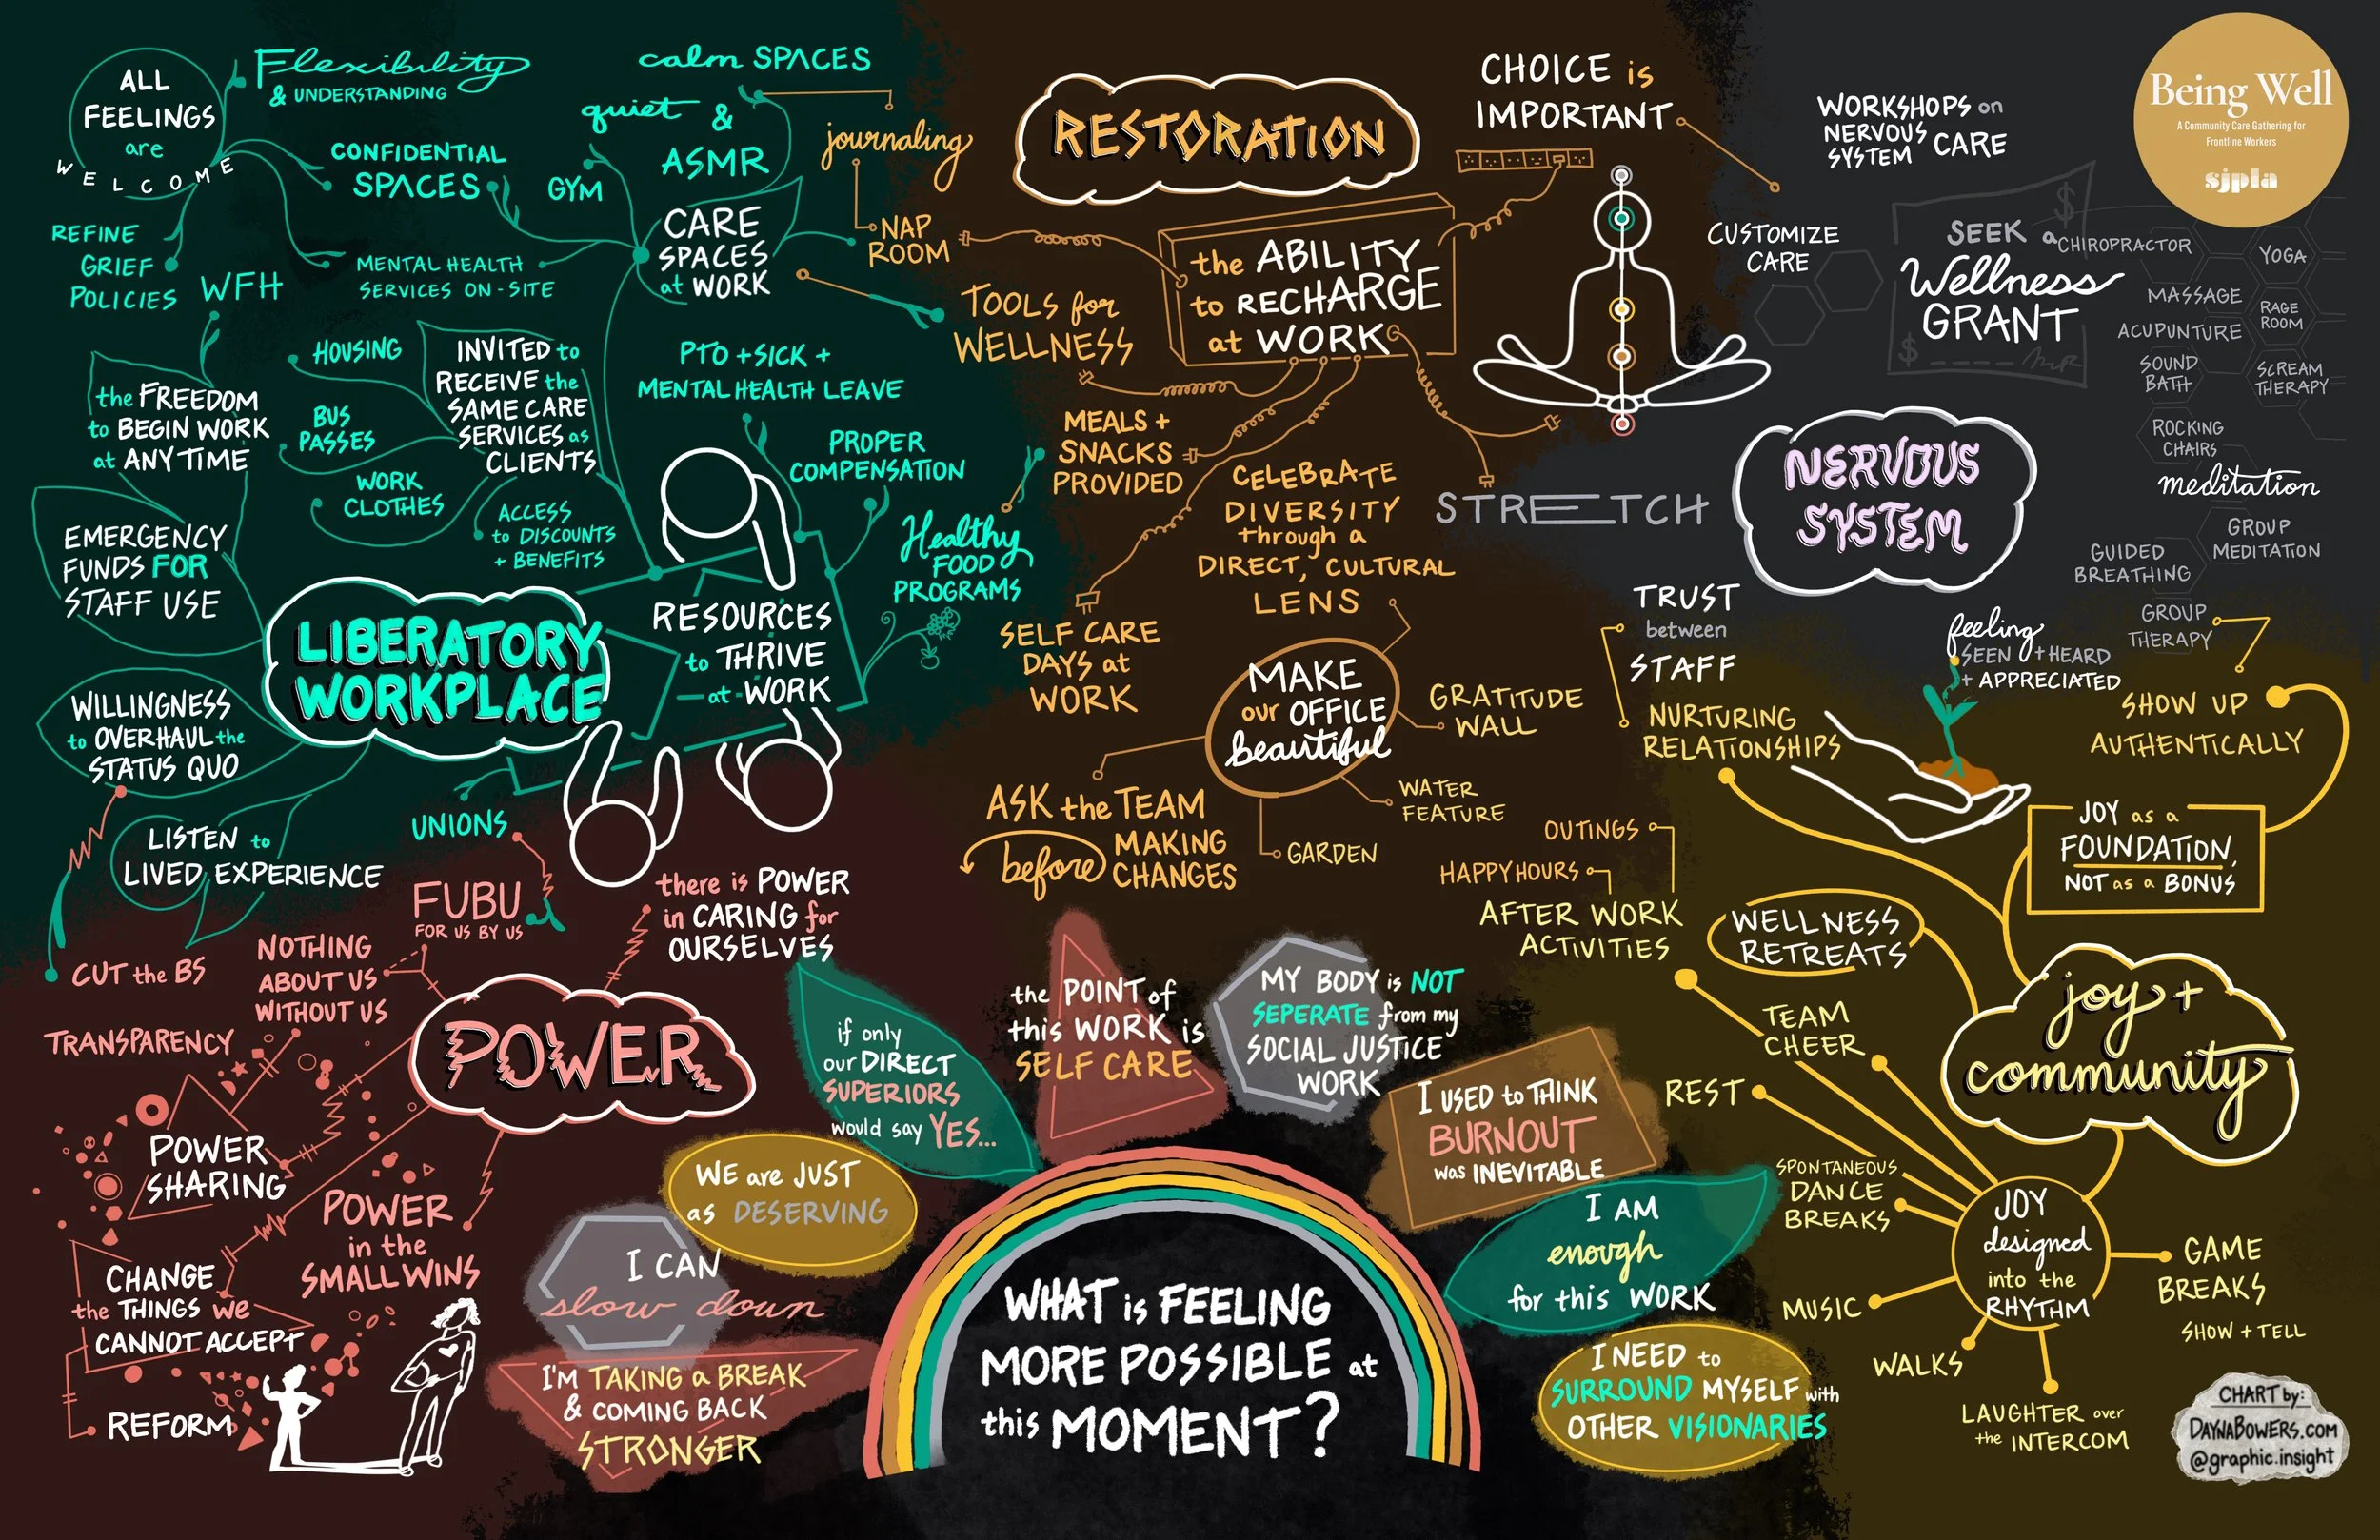 ALL
FEELINGS
are
WELCOME
Flexibility
& UNDERSTANDING
CONFIDENTIAL
SPACES
REFINE
GRIEF
POLICIES
MENTAL HEALTH
SERVICES ON-SITE
calm SPACES
quiet &
ASMR
GYM
CARE
SPACES
at WORK
journaling
NAP
ROOM
WFH
the FREEDOM
to BEGIN WORK
at ANYTIME
HOUSING
BUS
PASSES
WORK
CLOTHES
INVITED to
RECEIVE the
SAME CARE
SERVICES as
CLIENTS
ACCESS
to DISCOUNTS
+ BENEFITS
PTO + SICK +
MENTAL HEALTH LEAVE
PROPER
COMPENSATION
Healthy
FOOD
PROGRAMS
EMERGENCY
FUNDS FOR
STAFF USE
LIBERATORY
WORKPLACE
RESOURCES
to THRIVE
at WORK
WILLINGNESS
to OVERHAUL the
STATUS QUO
LISTEN to
LIVED EXPERIENCE
UNIONS
RESTORATION
the ABILITY
to RECHARGE
at WORK
TOOLS for
WELLNESS
MEALS +
SNACKS
PROVIDED
SELF CARE
DAYS at
WORK
CELEBRATE
DIVERSITY
through a
DIRECT, CULTURAL
LENS
MAKE
our OFFICE
beautiful
GRATITUDE
WALL
WATER
FEATURE
GARDEN
ASK the TEAM
before MAKING
CHANGES
CHOICE is
IMPORTANT
CUSTOMIZE
CARE
STRETCH
WORKSHOPS on
NERVOUS
SYSTEM CARE
SEEK a
Wellness
GRANT
$
$
Being Well
A Community Care Gathering for
Frontline Workers
sjpla
CHIROPRACTOR
YOGA
MASSAGE
RAGE
ROOM
ACUPUNTURE
SOUND
BATH
SCREAM
THERAPY
ROCKING
CHAIRS
meditation
GROUP
MEDITATION
GUIDED
BREATHING
GROUP
THERAPY
NERVOUS
SYSTEM
TRUST
between
STAFF
NURTURING
RELATIONSHIPS
feeling
SEEN + HEARD
+ APPRECIATED
SHOW UP
AUTHENTICALLY
JOY as a
FOUNDATION,
NOT as a BONUS
OUTINGS
HAPPY HOURS
AFTER WORK
ACTIVITIES
WELLNESS
RETREATS
joy +
community
TEAM
CHEER
REST
SPONTANEOUS
DANCE
BREAKS
MUSIC
WALKS
LAUGHTER over
the INTERCOM
JOY
designed
into the
RHYTHM
GAME
BREAKS
SHOW + TELL
CUT the BS
FUBU
FOR US BY US
NOTHING
ABOUT US
WITHOUT US
there is POWER
in CARING for
OURSELVES
TRANSPARENCY
POWER
POWER
SHARING
POWER
in the
SMALL WINS
CHANGE
the THINGS we
CANNOT ACCEPT
REFORM
if only
our DIRECT
SUPERIORS
would say YES...
the POINT of
this WORK is
SELF CARE
MY BODY is NOT
SEPERATE from my
SOCIAL JUSTICE
WORK
I USED to THINK
BURNOUT
was INEVITABLE
WE are JUST
as DESERVING
I CAN
slow down
I'M TAKING a BREAK
& COMING BACK
STRONGER
I AM
enough
for this WORK
I NEED to
SURROUND MYSELF with
OTHER VISIONARIES
WHAT is FEELING
MORE POSSIBLE at
this MOMENT?
CHART by:
DAYNABOWERS.COM
@graphic.insight